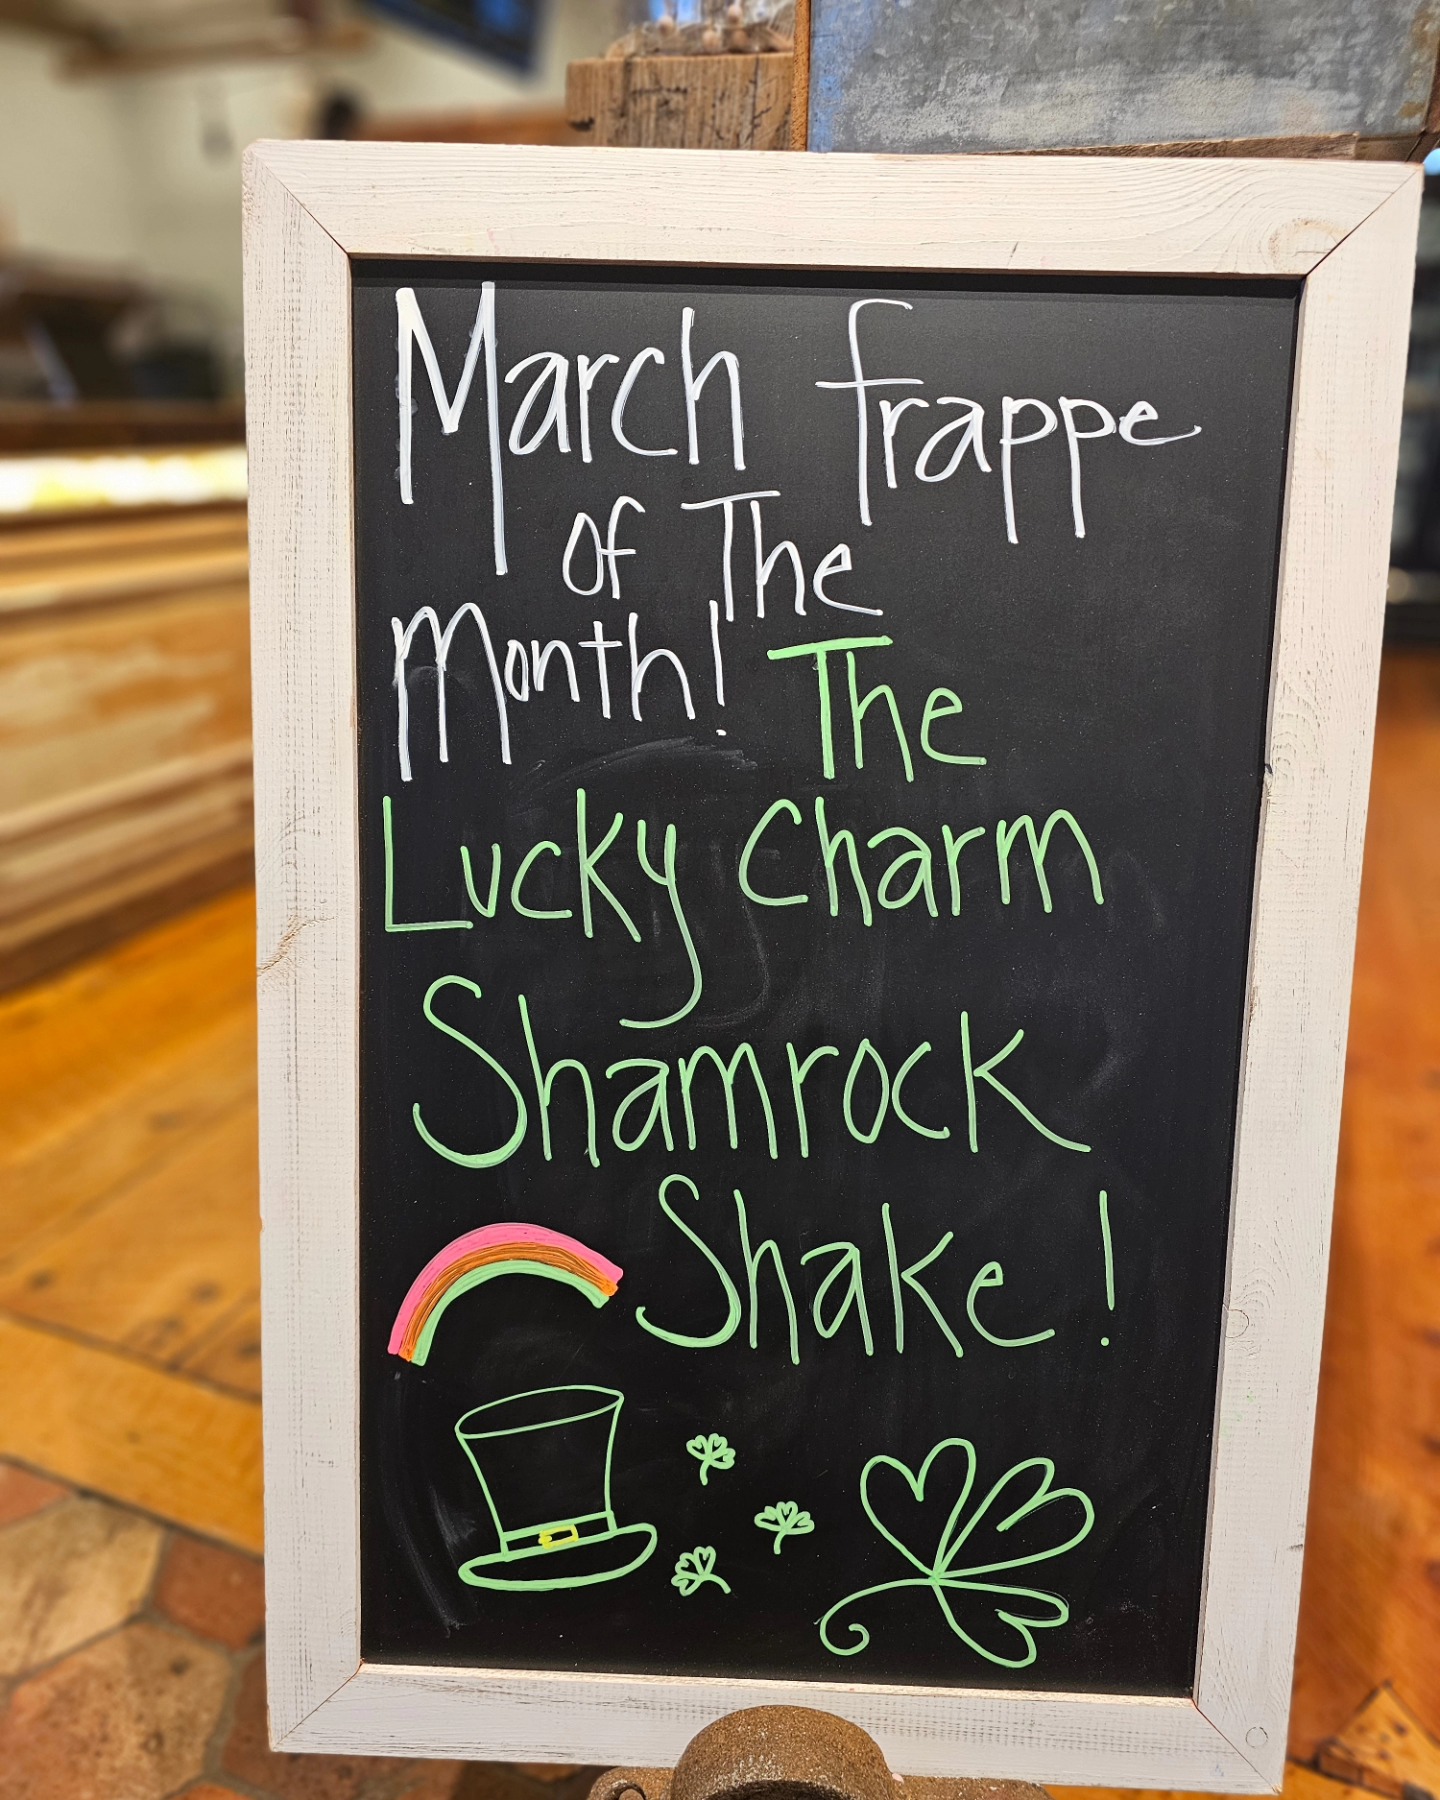 March frappe
of The
Month! The
Lucky Charm
Shamrock
Shake!